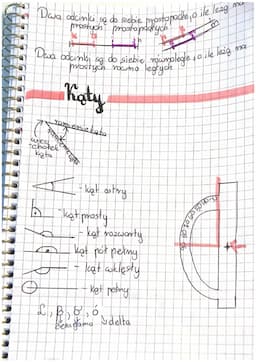 Dwa odcinki są do siebie prostopadłe, o ile leżą na
prostych prostopadłych.
Dwa odcinki są do siebie równoległe, o ile leżą na
prostych równo ległych.
Kąty
ramię kąta
wierz-
chołek
kąta
- kąt ostry
- kąt prosty
- kąt rozwarty
kąt pół pełny
- kąt wklęsły
- kąt pełny
α, β, γ, δ
delta